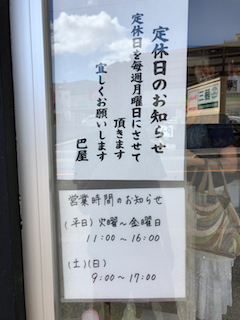 定休日のお知らせ
定休日を毎週月曜日にさせて
頂きます
宜しくお願いします
巴屋
営業時間のお知らせ
(平日)火曜〜金曜日
11:00〜16:00
(土)(日)
9:00〜17:00